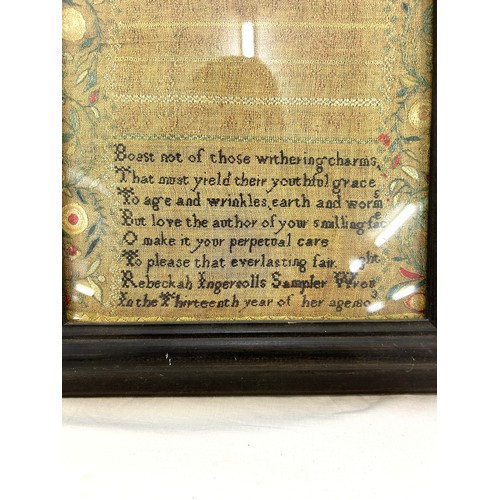 Boast not of those withering charms,
That must yield their youthful grace
To age and wrinkles, earth and worms
But love the author of your smilling face
O make it your perpetual care
To please that everlasting fair.
Rebeckah Ingersolls Sampler Wrought
In the Thirteenth year of her age